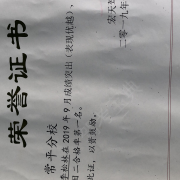 荣誉证书
常平分校
在2019年9月成绩突出(表现优越),
目二合格率第一名。
此证,以资鼓励。
宏天
二〇一九年